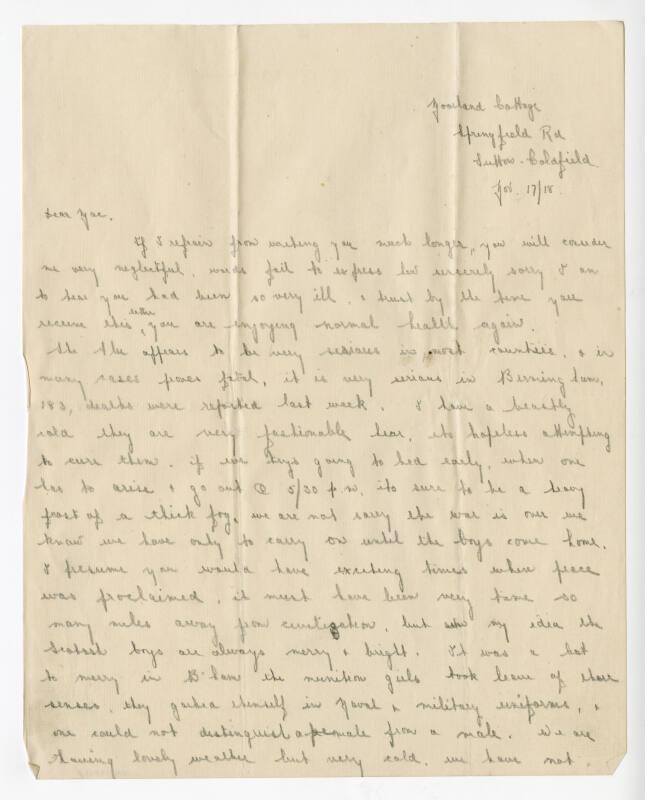 Cottage
Springfield Rd
Sutton-Coldfield
Nov. 17/18
Dear
If I refrain from writing you much longer, you will consider
me very neglectful, words fail to express how sincerely sorry I am
to hear you had been so very ill, & trust by the time you
receive this letter, you are enjoying normal health again.
the Flu appears to be very serious in most counties, & in
many cases proves fatal, it is very serious in Birmingham,
183, deaths were reported last week. I have a beastly
cold they are very fashionable here, its hopeless attempting
to cure them. if we trys going to bed early, when one
has to arise & go out @ 5/30 its sure to be a heavy
frost of a thick fog. we are not sorry the war is over we
know we have only to carry on until the boys come home.
I presume you would have exciting times when peace
was proclaimed, it must have been very tame so
many miles away from civilization, but my idea the
Scotch boys are always merry & bright. It was a bit
to merry in B'ham the munition girls took leave of their
senses, they garbed themself in Naval & military uniforms, &
one could not distinguish a female from a male. We are
having lovely weather but very cold, we have not